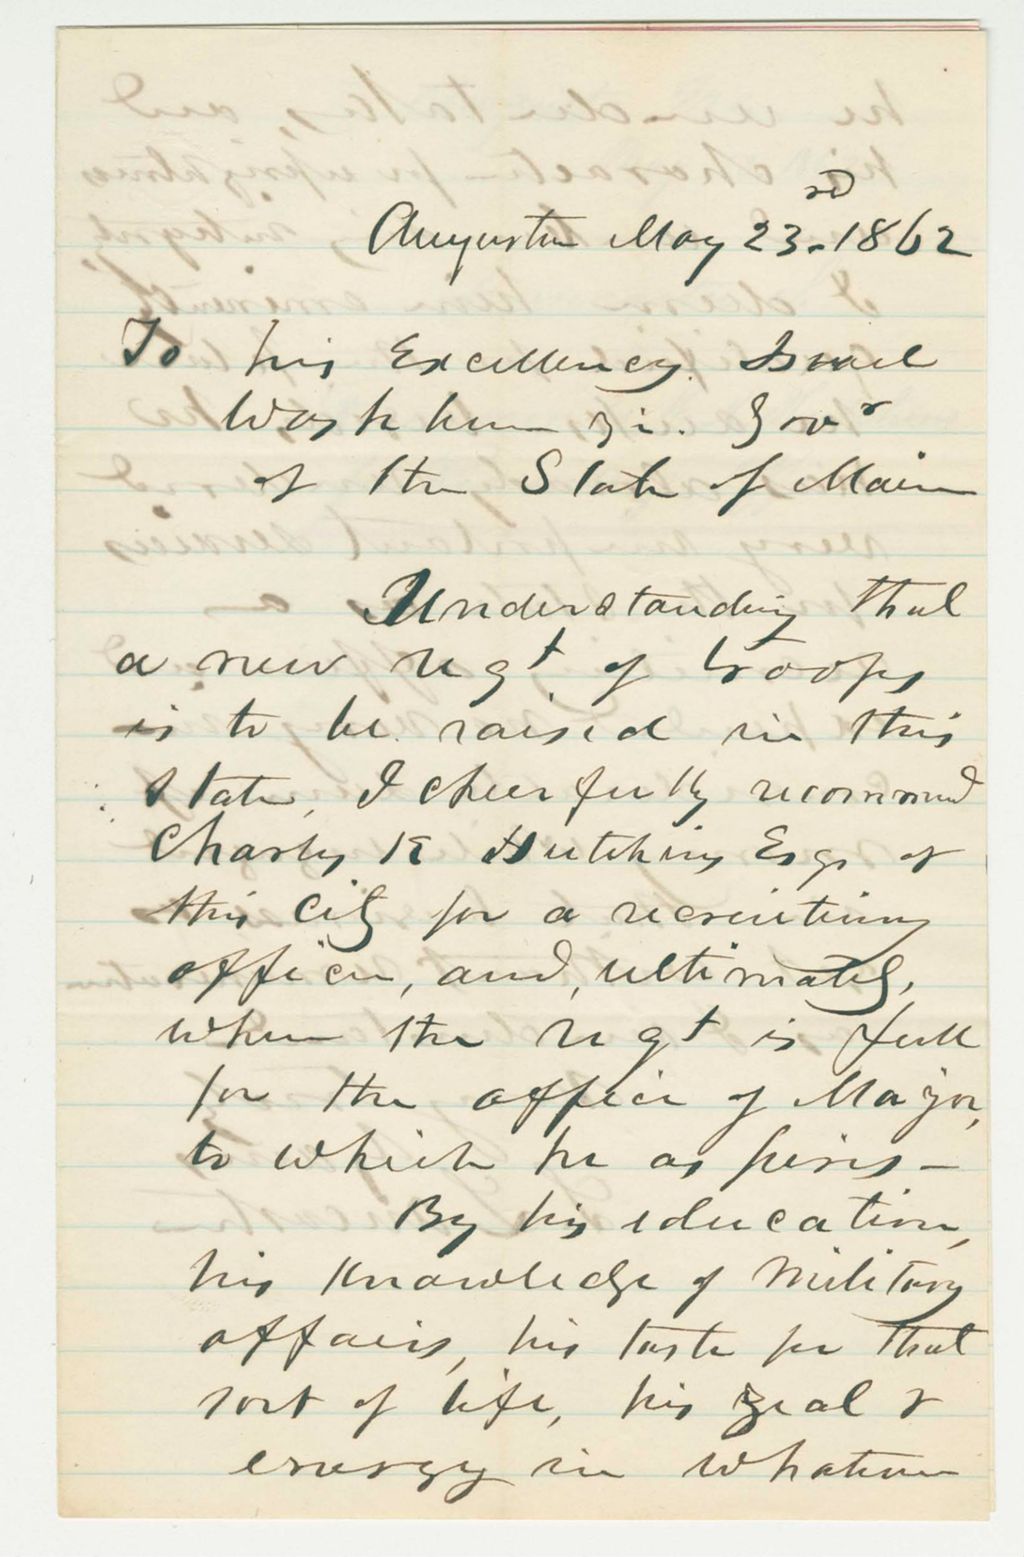 Augusta May 23rd. 1862
To his Excellency. Israel
Washburn Jr. Govr
of the State of Maine
Understanding that
a new regt of troops
is to be raised in this
state, I cheerfully recommend
Charles K Hutchins Esqr of
this city for a recruiting
officer, and, ultimately,
when the regt is full
for the office of Major,
to which he aspires -
By his education,
his knowledge of military
affairs, his taste for that
sort of life, his zeal &
energy in whatever